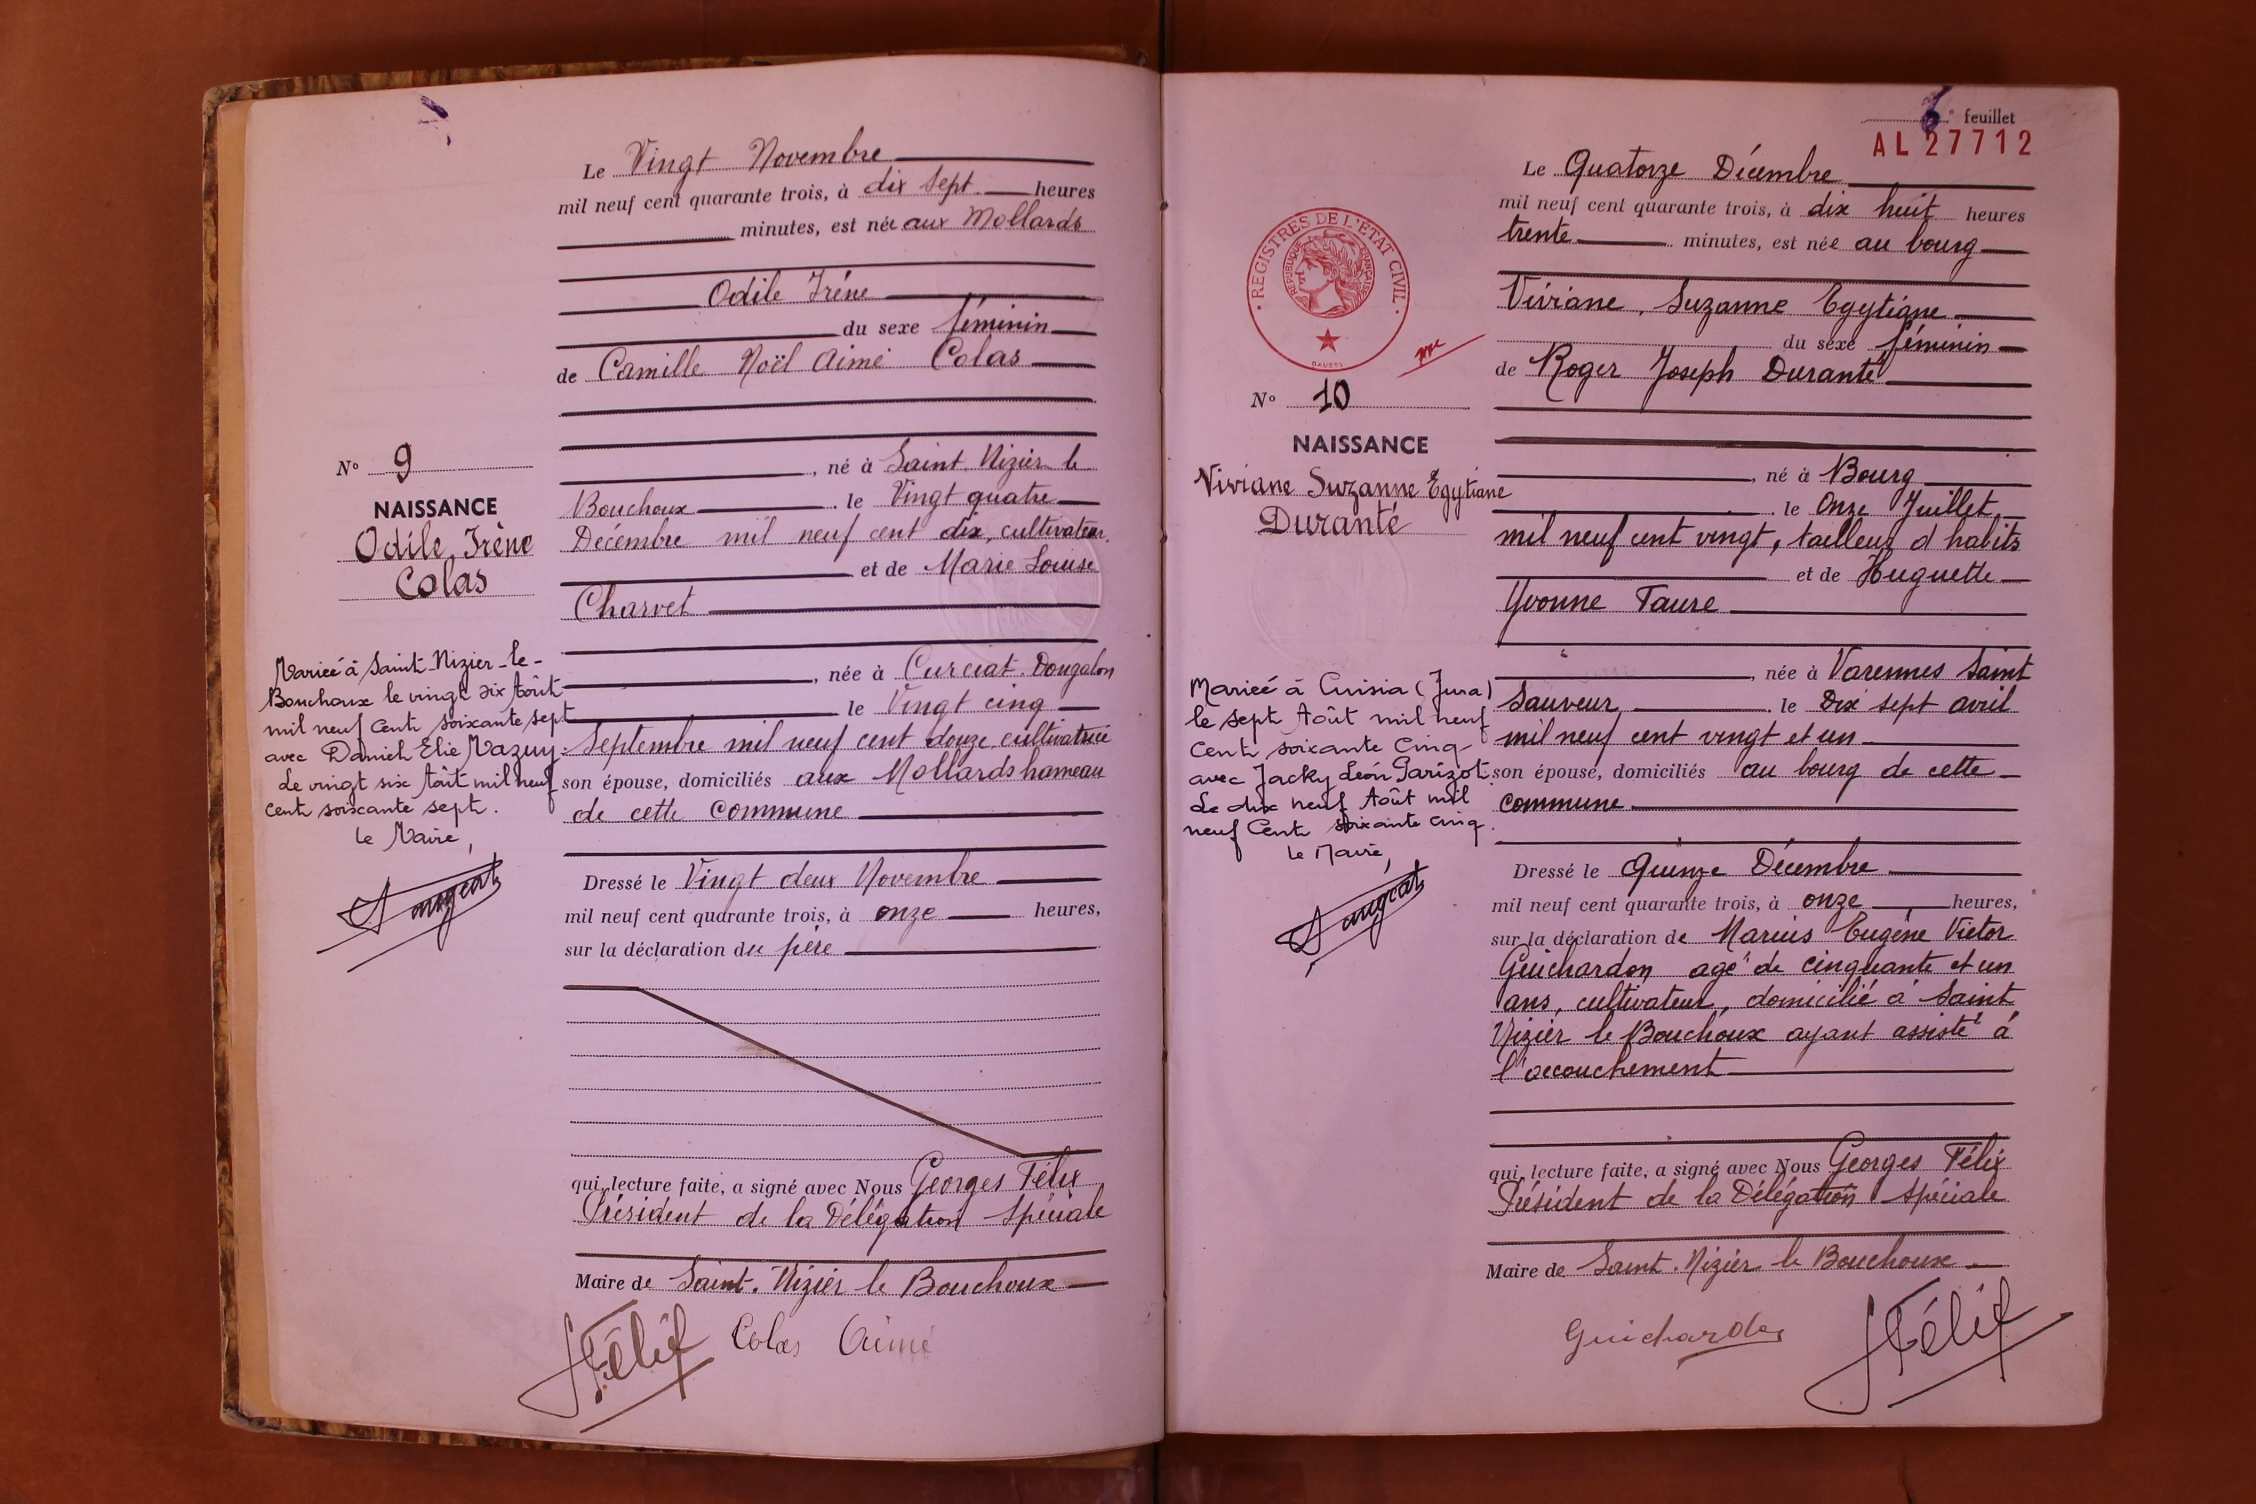 Le Vingt Novembre
mil neuf cent quarante trois, à dix sept heures
minutes, est née aux Mollards
Odile Irène
du sexe féminin
de Camille Noël Aimé Colas
, né à Saint Nizier le
Bouchoux le Vingt quatre
Décembre mil neuf cent dix, cultivateur,
et de Marie Louise
Charvet
, née à Curciat Dongalon
le Vingt cinq
Septembre mil neuf cent douze cultivatrice
son épouse, domiciliés aux Mollards hameau
de cette commune
Dressé le Vingt deux Novembre
mil neuf cent quarante trois, à onze heures,
sur la déclaration du père
qui, lecture faite, a signé avec Nous Georges Félix
Président de la Délégation Spéciale
Maire de Saint-Nizier le Bouchoux
Félix Colas Aimé
N° 9
NAISSANCE
Odile, Irène
Colas
Mariée à Saint-Nizier-le-
Bouchoux le vingt six Août
mil neuf cent soixante sept
avec Daniel Elie Mazuy.
Le vingt six Août mil neuf
cent soixante sept.
le Maire,
feuillet
AL 27712
Le Quatorze Décembre
mil neuf cent quarante trois, à dix huit heures
trente minutes, est née au bourg
Viviane, Suzanne Egytiane
du sexe féminin
de Roger Joseph Duranté
, né à Bourg
le Onze Juillet
mil neuf cent vingt, tailleur d'habits
et de Huguette
Yvonne Faure
, née à Varennes Saint
Sauveur le Dix sept avril
mil neuf cent vingt et un
son épouse, domiciliés au bourg de cette
commune
Dressé le Quinze Décembre
mil neuf cent quarante trois, à onze heures,
sur la déclaration de Marius Eugène Victor
Guichardon agé de cinquante et un
ans, cultivateur, domicilié à Saint
Nizier le Bouchoux ayant assisté à
l'accouchement
qui, lecture faite, a signé avec Nous Georges Félix
Président de la Délégation Spéciale
Maire de Saint-Nizier le Bouchoux
Félix
· REGISTRES DE L'ÉTAT CIVIL ·
RÉPUBLIQUE FRANÇAISE
N° 10
NAISSANCE
Viviane Suzanne Egytiane
Duranté
Mariée à Cuisia (Jura)
le sept Août mil neuf
cent soixante cinq
avec Jacky Léon Parizot
Le dix neuf Août mil
neuf cent soixante cinq.
le Maire,